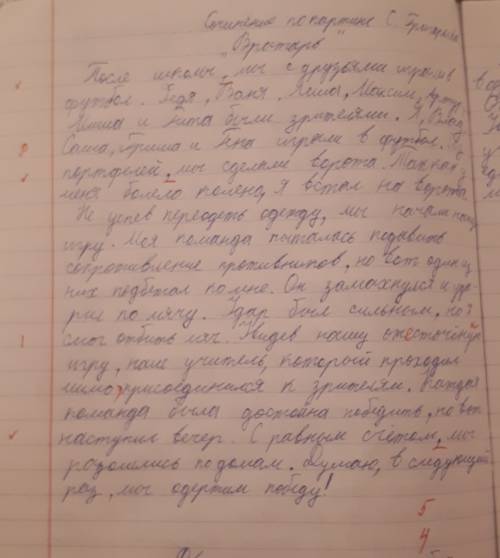 Сочинение по картине С. Григорьева
"Вратарь"
После школы, мы с друзьями играли в
футбол. Федя, Ваня, Лиша, Максим,
Миша и Никита были зрителями. Я, Влад,
Саша, Гриша и Яна играли в футбол. Из
портфелей, мы сделали ворота. Так как у
меня болело колено, я встал на ворота.
Не успев переодеть одежду, мы начали нашу
игру. Моя команда пыталась подавить
сопротивление противников, но вот один из
них подбежал ко мне. Он замахнулся и уда-
рил по мячу. Удар был сильным, но я
смог отбить мяч. Увидев нашу ожесточёную
игру, наш учитель, который проходил
мимо, присоединился к зрителям. Каждая
команда была достойна победить, но вот
наступил вечер. С равным счётом, мы
родошлись по домам. Думаю, в следующий
раз, мы одержим победу!
5
4